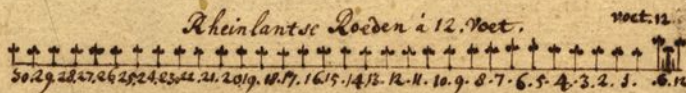 Rheinlantse Roeden à 12. Voet.
voet. 12
30. 29. 28. 27. 26. 25. 24. 23. 22. 21. 20. 19. 18. 17. 16. 15. 14. 13. 12. 11. 10. 9. 8. 7. 6. 5. 4. 3. 2. 1. 6. 12